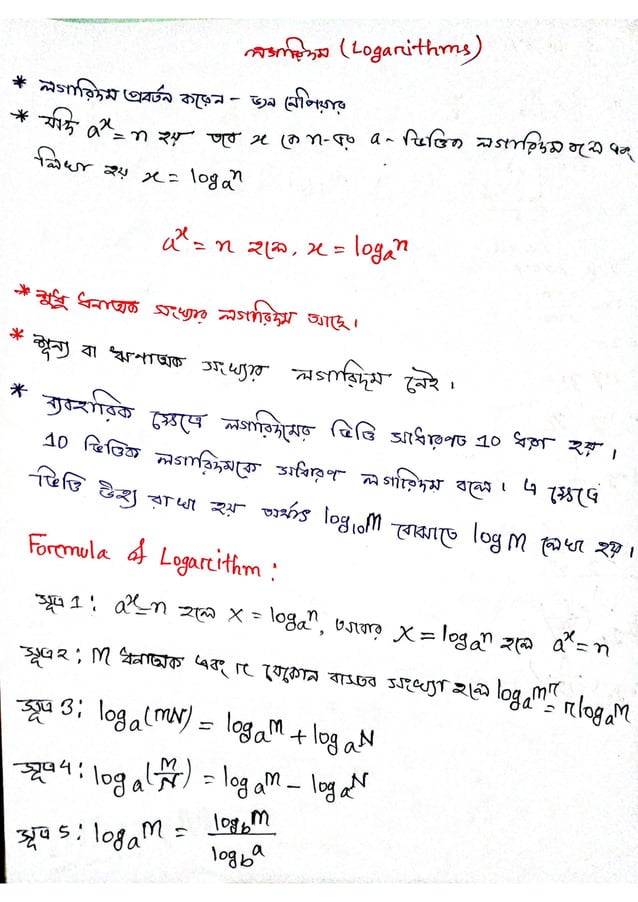 লগারিদম (Logarithms)
* লগারিদম প্রবর্তন করেন - জন নেপিয়ার
* যদি aˣ = n হয় তবে x কে n-এর a-ভিত্তিক লগারিদম বলে এবং
লিখা হয় x = logₐn
aˣ = n হলে, x = logₐn
* শুধু ধনাত্মক সংখ্যার লগারিদম আছে।
* শূন্য বা ঋণাত্মক সংখ্যার লগারিদম নেই।
* ব্যবহারিক ক্ষেত্রে লগারিদমের ভিত্তি সাধারণত 10 ধরা হয়।
10 ভিত্তিক লগারিদমকে সাধারণ লগারিদম বলে। এ ক্ষেত্রে
ভিত্তি উহ্য রাখা হয় অর্থাৎ log₁₀M বোঝাতে log M লেখা হয়।
Formula of Logarithm:
সূত্র 1: aˣ = n হলে X = logₐn, আবার X = logₐn হলে aˣ = n
সূত্র ২: M ধনাত্মক এবং r যেকোন বাস্তব সংখ্যা হলে logₐmʳ = r logₐM
সূত্র 3: logₐ(MN) = logₐM + logₐN
সূত্র 4: logₐ(M/N) = logₐM - logₐN
সূত্র 5: logₐM = log_b M / log_b a